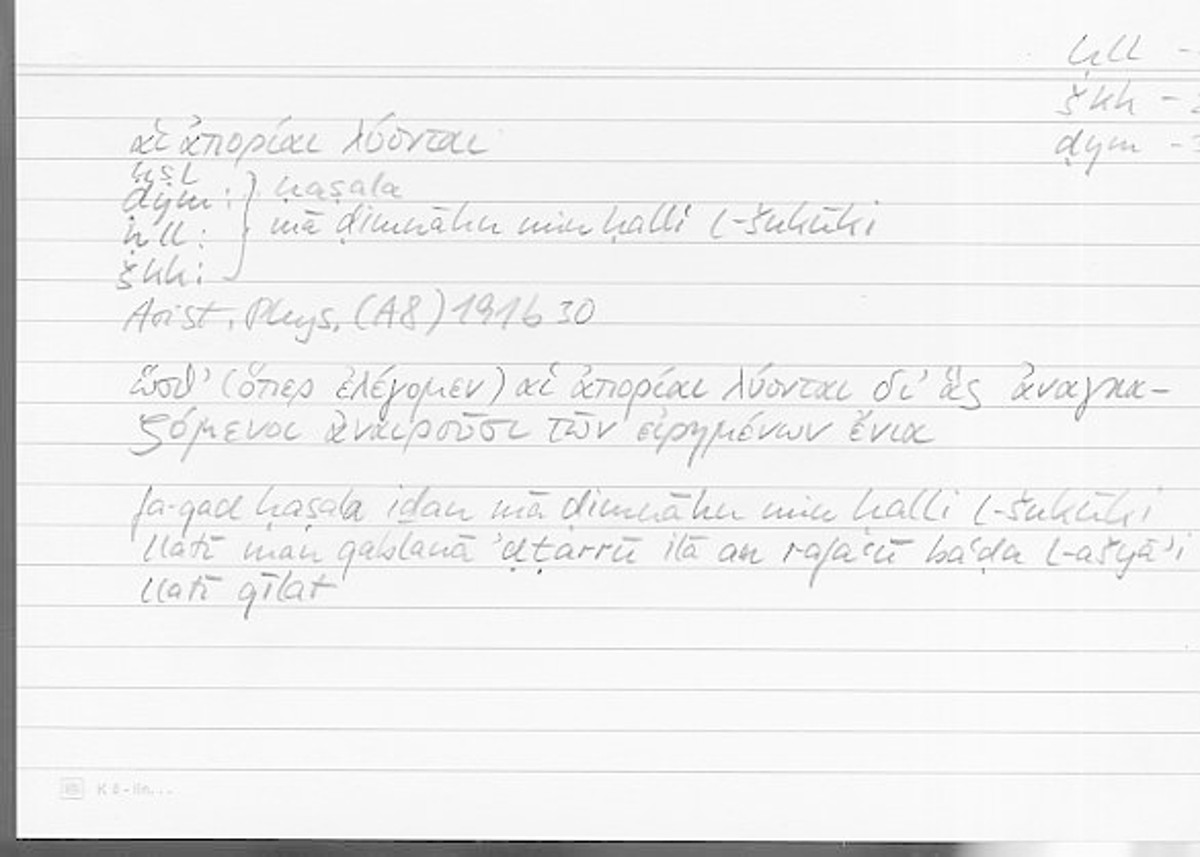 ḥll -
škk -
ḍym -
αἱ ἀπορίαι λύονται
ḥṣl
ḍym: } ḥaṣala
ḥll: mā ḍimnāhu min ḥalli l-šukūki
škk:
Arist. Phys. (A8) 191b 30
ὥσθ' (ὅπερ ἐλέγομεν) αἱ ἀπορίαι λύονται δι' ἃς ἀναγκα-
ζόμενοι ἀναιροῦσι τῶν εἰρημένων ἔνια
fa-qad ḥaṣala iḏan mā ḍimnāhu min ḥalli l-šukūki
llatī man qablanā 'ḍṭarrū ilā an rafaʿū baʿḍa l-ašyāʾi
llatī qīlat